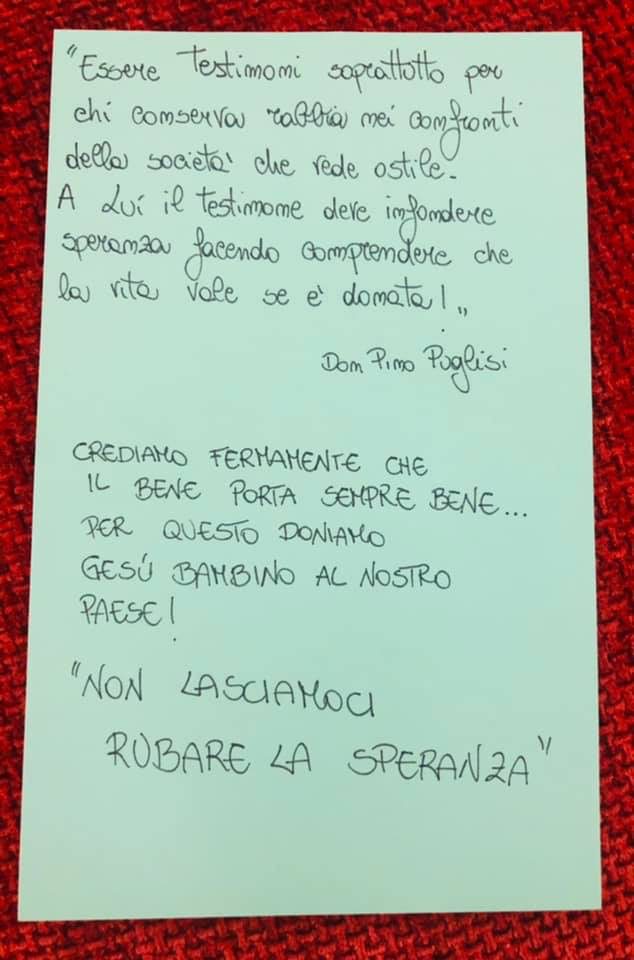 "Essere testimoni soprattutto per
chi conserva rabbia nei confronti
della società che vede ostile.
A Lui il testimone deve infondere
speranza facendo comprendere che
la vita vale se è donata!"
Don Pino Puglisi
CREDIAMO FERMAMENTE CHE
IL BENE PORTA SEMPRE BENE...
PER QUESTO DONIAMO
GESÚ BAMBINO AL NOSTRO
PAESE!
"NON LASCIAMOCI
RUBARE LA SPERANZA"